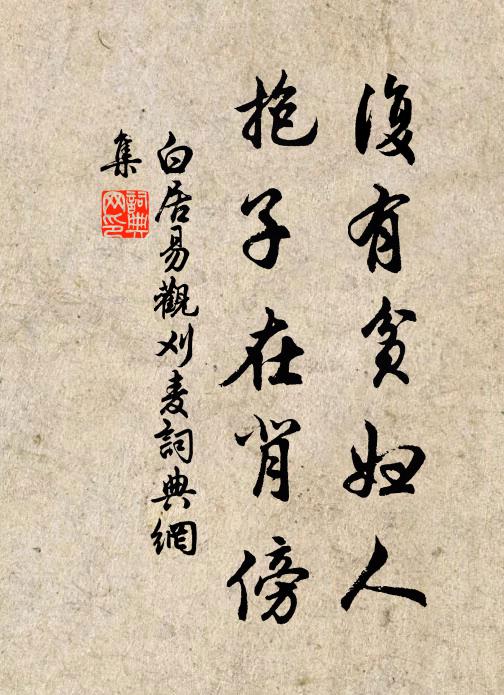 復有貧妇人
抱子在背傍
白居易觀刈麦詞典網
集
詞典
网印